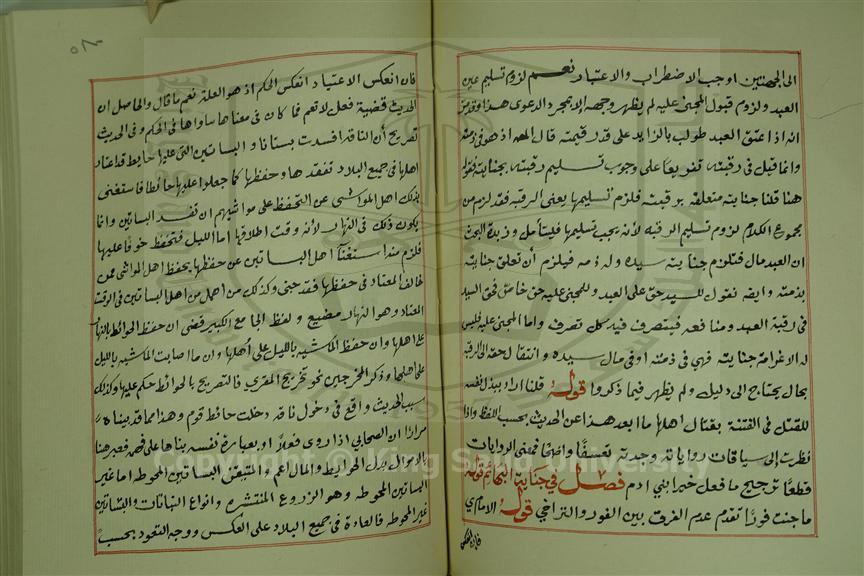 الى الجهتين اوجب الاضطراب والاعتباد نعم لزوم تسليم عين
العبد ولزوم قبول المجنى عليه لم يظهر وجهه الا بتجرد الدعوى هذا وقد
انه اذا عتق العبد طولب بالزايد على قدر قيمته قال المص اذ هو فى ذمته
وانما قيل فى رقبته تفريعا على وجوب تسليم رقبته بجنايته فقوله
هنا قلنا جنايته متعلقه برقبته فلزم تسليمها يعنى الرقبه فقد لزم من
مجموع الكلام لزوم تسليم الرقبه لأنه يجب تسليمها فليتأمل وزبدة البحث
ان العبد مال فتلزم جنايته سيده وله ذمه فيلزم أن تعلق جنايته
بذمته ورقبه نقول للسيد حق على العبد وللمجنى عليه حق خاص فحق السيد
فى رقبة العبد ومنافعه فيتصرف فيه كل تصرف واما المجنى عليه فليس
له الا غرامة جنايته فهى فى ذمته او فى مال سيده وانتقال حقه الى الرقبه
بحال يحتاج الى دليل ولم يظهر فيما ذكروا قوله قلنا اراد بذل نفسه
للقتل فى الفتنة بقتال اهلها ما ابعد هذا عن الحديث بحسب اللفظ واذا
نظرت الى سياقات رواياته وجدته تعسفا واضحا فحفى الروايات
قطعا ترجيح ما فعل خير ابنى ادم فصل فى جناية البهائم قوله
ما جنت فورا تقدم عدم الفرق بين الفور والتراخى قوله الامام ى
فان انعكس
فان انعكس الاعتياد انعكس الحكم اذ هو العلة نعم ما قال والحاصل ان
الحديث قضية فعل لا تعم فما كان فى معناها ساواها فى الحكم وفى الحديث
تصريح أن الناقه افسدت بستانا والبساتين التى عليها حايط قد اعتاد
اهلها فى جميع البلاد تفقدها وحفظها كما جعلوا عليها حائطا فاستغنى
بذلك اهل المواشى عن التحفظ على مواشيهم ان تفسد البساتين وانما
يكون ذلك فى النهار لأنه وقت اطلاقها اما الليل فتحفظ خوفا عليها
فلزم منه استغنآ اهل البساتين عن حفظها بحفظ اهل المواشى فمن
خالف المعتاد فى حفظها فقد جنى وكذلك من اهمل من اهل البساتين فى الوقت
المعتاد وهو النهار مضيع ولفظ الجامع الكبير قضى ان حفظ الحوائط بالنهار
على اهلها وان حفظ الماشيه بالليل على أهلها وان ما اصابت الماشيه بالليل
على اهلها وذكر المخرجين نحو تخريج المقرى فالتصريح بالحوائط حكم عليها وكذلك
سبب الحديث واقع فى دخول ناقه دخلت حائط قوم وهذا مما قدمنا
مرارا ان الصحابي اذا روى فعلا او بعبارة نفسه بناها على فهمه فعبر هنا
بالاموال بدل الحوايط والمال اعم والمتيقن البساتين المحوطه اما غير
البساتين المحوطه وهو الزروع المنتشره وانواع النباتات والبساتين
غير المحوطه فالعادة فى جميع البلاد على العكس ووجه التعود بحسب
Copyright © King Saud University
1957